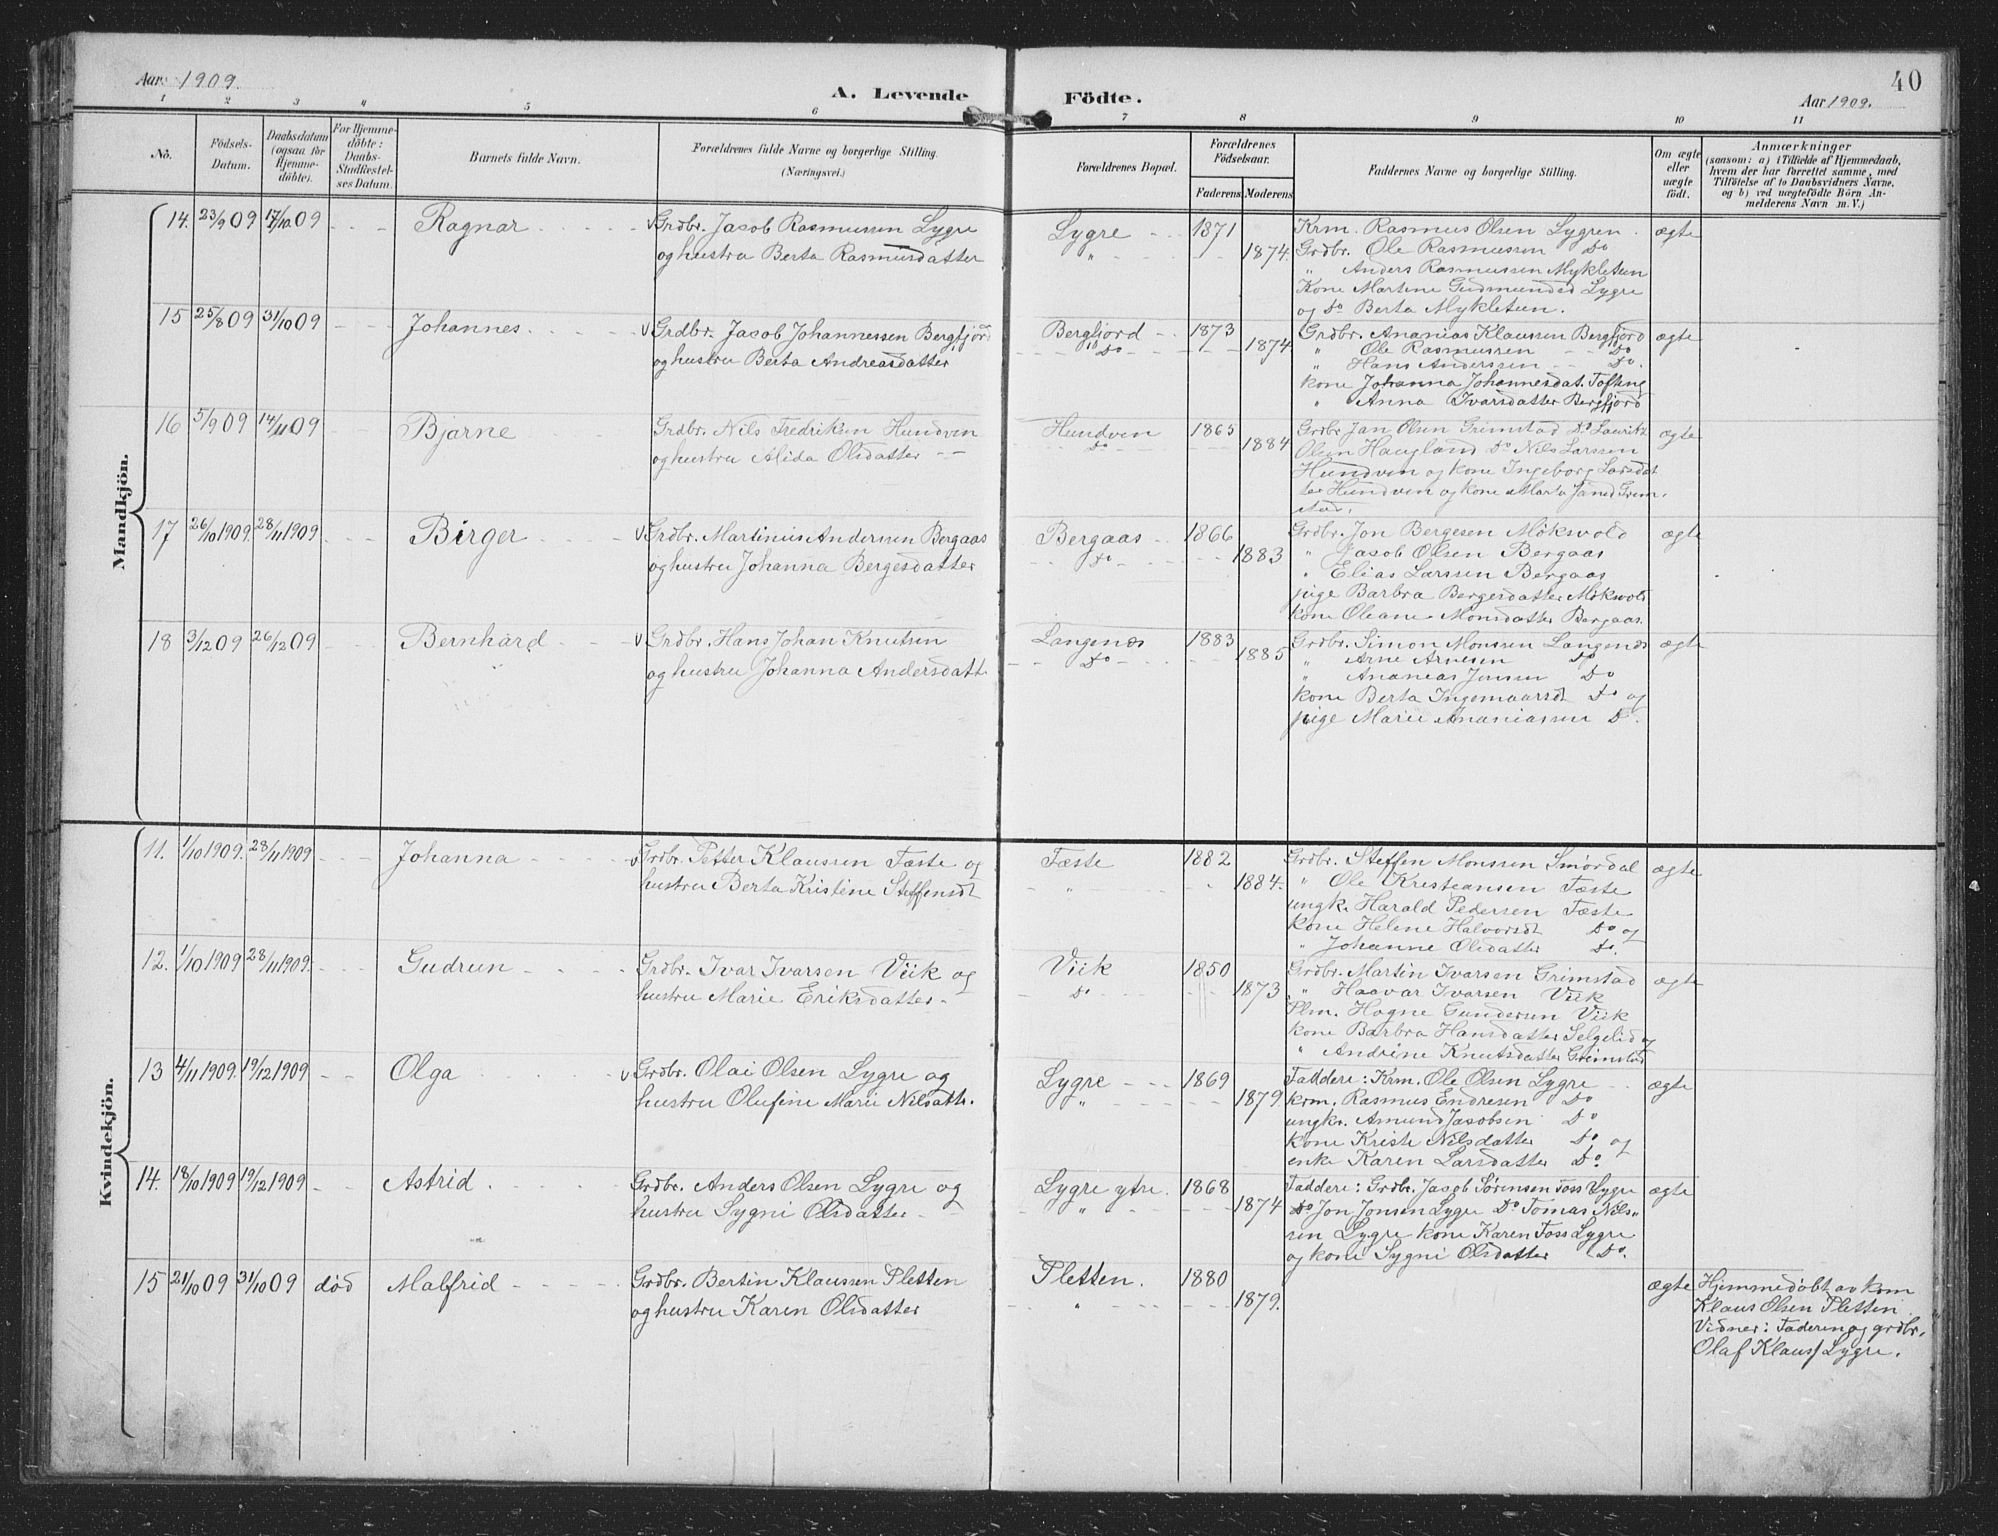 Aar 1909.
A. Levende Födte.
40
Aar 1909.
1 2 3 " 5 6 7 8 9 10 11
No.
Födsels-
Datum.
Daabsdatum
(ogsaa for
Hjemme-
döbte).
For Hjemme-
döbte:
Daabs-
Stadfæstel-
ses Datum.
Barnets fulde Navn.
Forældrenes fulde Navne og borgerlige Stilling.
(Næringsvei.)
Forældrenes Bopæl.
Forældrenes
Födselsaar.
Faderens Moderens
Faddernes Navne og borgerlige Stilling.
Om ægte
eller
uægte
födt.
Anmærkninger
(saasom: a) i Tilfælde af Hjemmedaab,
hvem der har forrettet samme, med
Tilföielse af to Daabsvidners Navne,
og b) ved uægtefödte Börn An-
melderens Navn m. V.)
Mandkjön.
14. 23/9 09 17/10 09 Ragnar
Grdbr. Jacob Rasmussen Lygre
og hustru Berta Rasmusdatter
Lygre 1871
" 1874.
Krm. Rasmus Olsen Lygren
Grdbr. Ole Rasmussen Do
" Anders Rasmussen Mykletun
Kone Martine Gudmundsd Lygre
og Do Berta Mykletun.
ægte
15 25/8 09 31/10 09 Johannes
Grdbr. Jacob Johannessen Bergfjord
og hustru Berta Andreasdatter
Bergfjord 1873
Do 1874
Grdbr. Ananias Klaussen Bergfjord
" Ole Rasmussen Do
" Hans Anderssen Do.
kone Johanna Johannesdat. Tofting
" Anna Ivarsdatter Bergfjord
ægte
16 5/9 09 14/11 09 Bjarne
Grdbr. Nils Fredriksen Hundvin
og hustru Alida Olsdatter
Hundvin 1865
Do 1884
Grdbr Jan Olsen Grimstad Do Laurits
Olsen Haugland Do Nils Larssen
Hundvin og kone Ingeborg Larsdat
ter Hundvin og kone Marta Jansd Grim-
stad.
ægte
17 26/10 1909. 28/11 1909 Birger
Grdbr. Martinius Andersen Bergaas
og hustru Johanna Bergesdatter
Bergaas 1866
Do 1883
Grdbr. Jon Bergesen Mökvold
" Jacob Olsen Bergaas
" Elias Larssen Bergaas
pige Barbra Bergesdatter Mökvold
kone Oleane Monsdatter Bergaas.
ægte
18 3/12 09 26/12 09 Bernhard
Grdbr. Hans Johan Knutsen
og hustru Johanna Andersdatt
Langenes 1883
Do 1885
Grdbr. Simon Monssen Langenes
" Arne Arnesen Do
" Ananias Jensen Do
kone Berta Ingemaarsdt Do og
pige Marie Ananiassen Do.
ægte
Kvindekjön.
11. 1/10 1909. 28/11 1909 Johanna
Grdbr. Petter Klaussen Tæste og
hustru Berta Kristine Steffensdt
Tæste 1882
" 1884.
Grdbr. Steffen Monssen Smördal
" Ole Kristeansen Tæste
ungk. Harald Pedersen Tæste
kone Helene Halvorsdt Do og
" Johanne Olsdatter Do.
ægte
12. 1/10 1909 28/11 1909. Gudrun
Grdbr. Ivar Ivarsen Viik og
hustru Marie Eriksdatter.
Viik 1850
Do 1873
Grdbr. Martin Ivarsen Grimstad
" Haavar Ivarsen Viik
Plm. Hogne Gundersen Viik
kone Barbra Hansdatter Selgelid og
" Andrine Knutsdatter Grimstad
ægte
13 4/11 1909. 19/12 1909 Olga
Grdbr. Olai Olsen Lygre og
hustru Olufine Marie Nilsdatt.
Lygre 1869
" 1879
Faddere: Krm. Ole Olsen Lygre
krm. Rasmus Endresen Do
ungkr. Amund Jacobsen Do
kone Kristi Nilsdatter Do og
enke Karen Larsdatter Do.
ægte
14. 18/10 1909 19/12 1909 Astrid
Grdbr. Anders Olsen Lygre og
hustru Sygni Olsdatter
Lygre ytre. 1868
" 1874
Faddere: Grdbr. Jacob Sörensen Foss Lygre
Do Jon Jonsen Lygre Do Tomas Nils-
sen Lygre kone Karen Foss Lygre
og kone Sygni Olsdatter Do.
ægte
15 21/10 09 31/10 09 död Malfrid
Grdbr. Bertin Klaussen Pletten
og hustru Karen Olsdatter
Pletten. 1880
" 1879.
ægte
Hjemmedöbt av krm
Klaus Olsen Pletten.
Vidner: Faderen og grdbr.
Olaf Klauss Lygre.